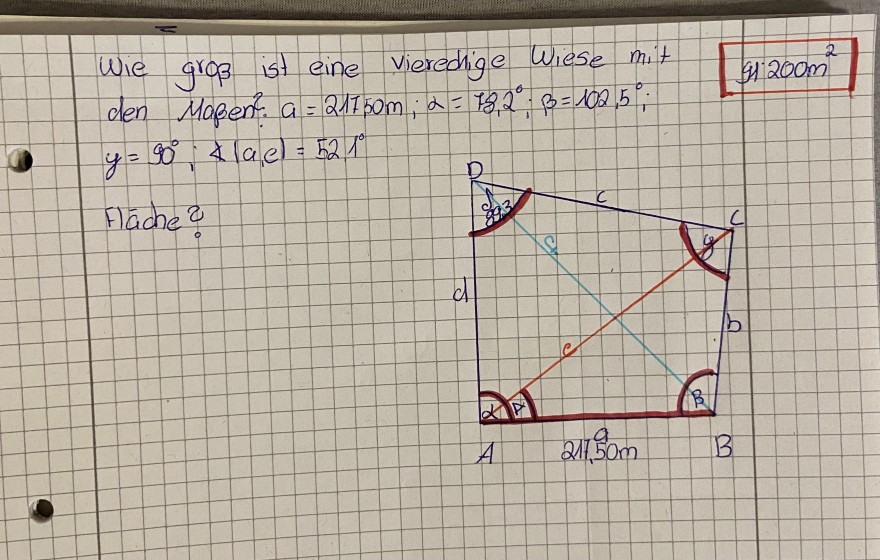 Wie groß ist eine viereckige Wiese mit
den Maßen?: a = 217,50m; α = 78,2°; β = 102,5°;
γ = 90°; ∢(a,e) = 52,1°
91.200m²
Fläche?
D
c
C
89,3
f
γ
d
b
e
α
β
a
A
217,50m
B